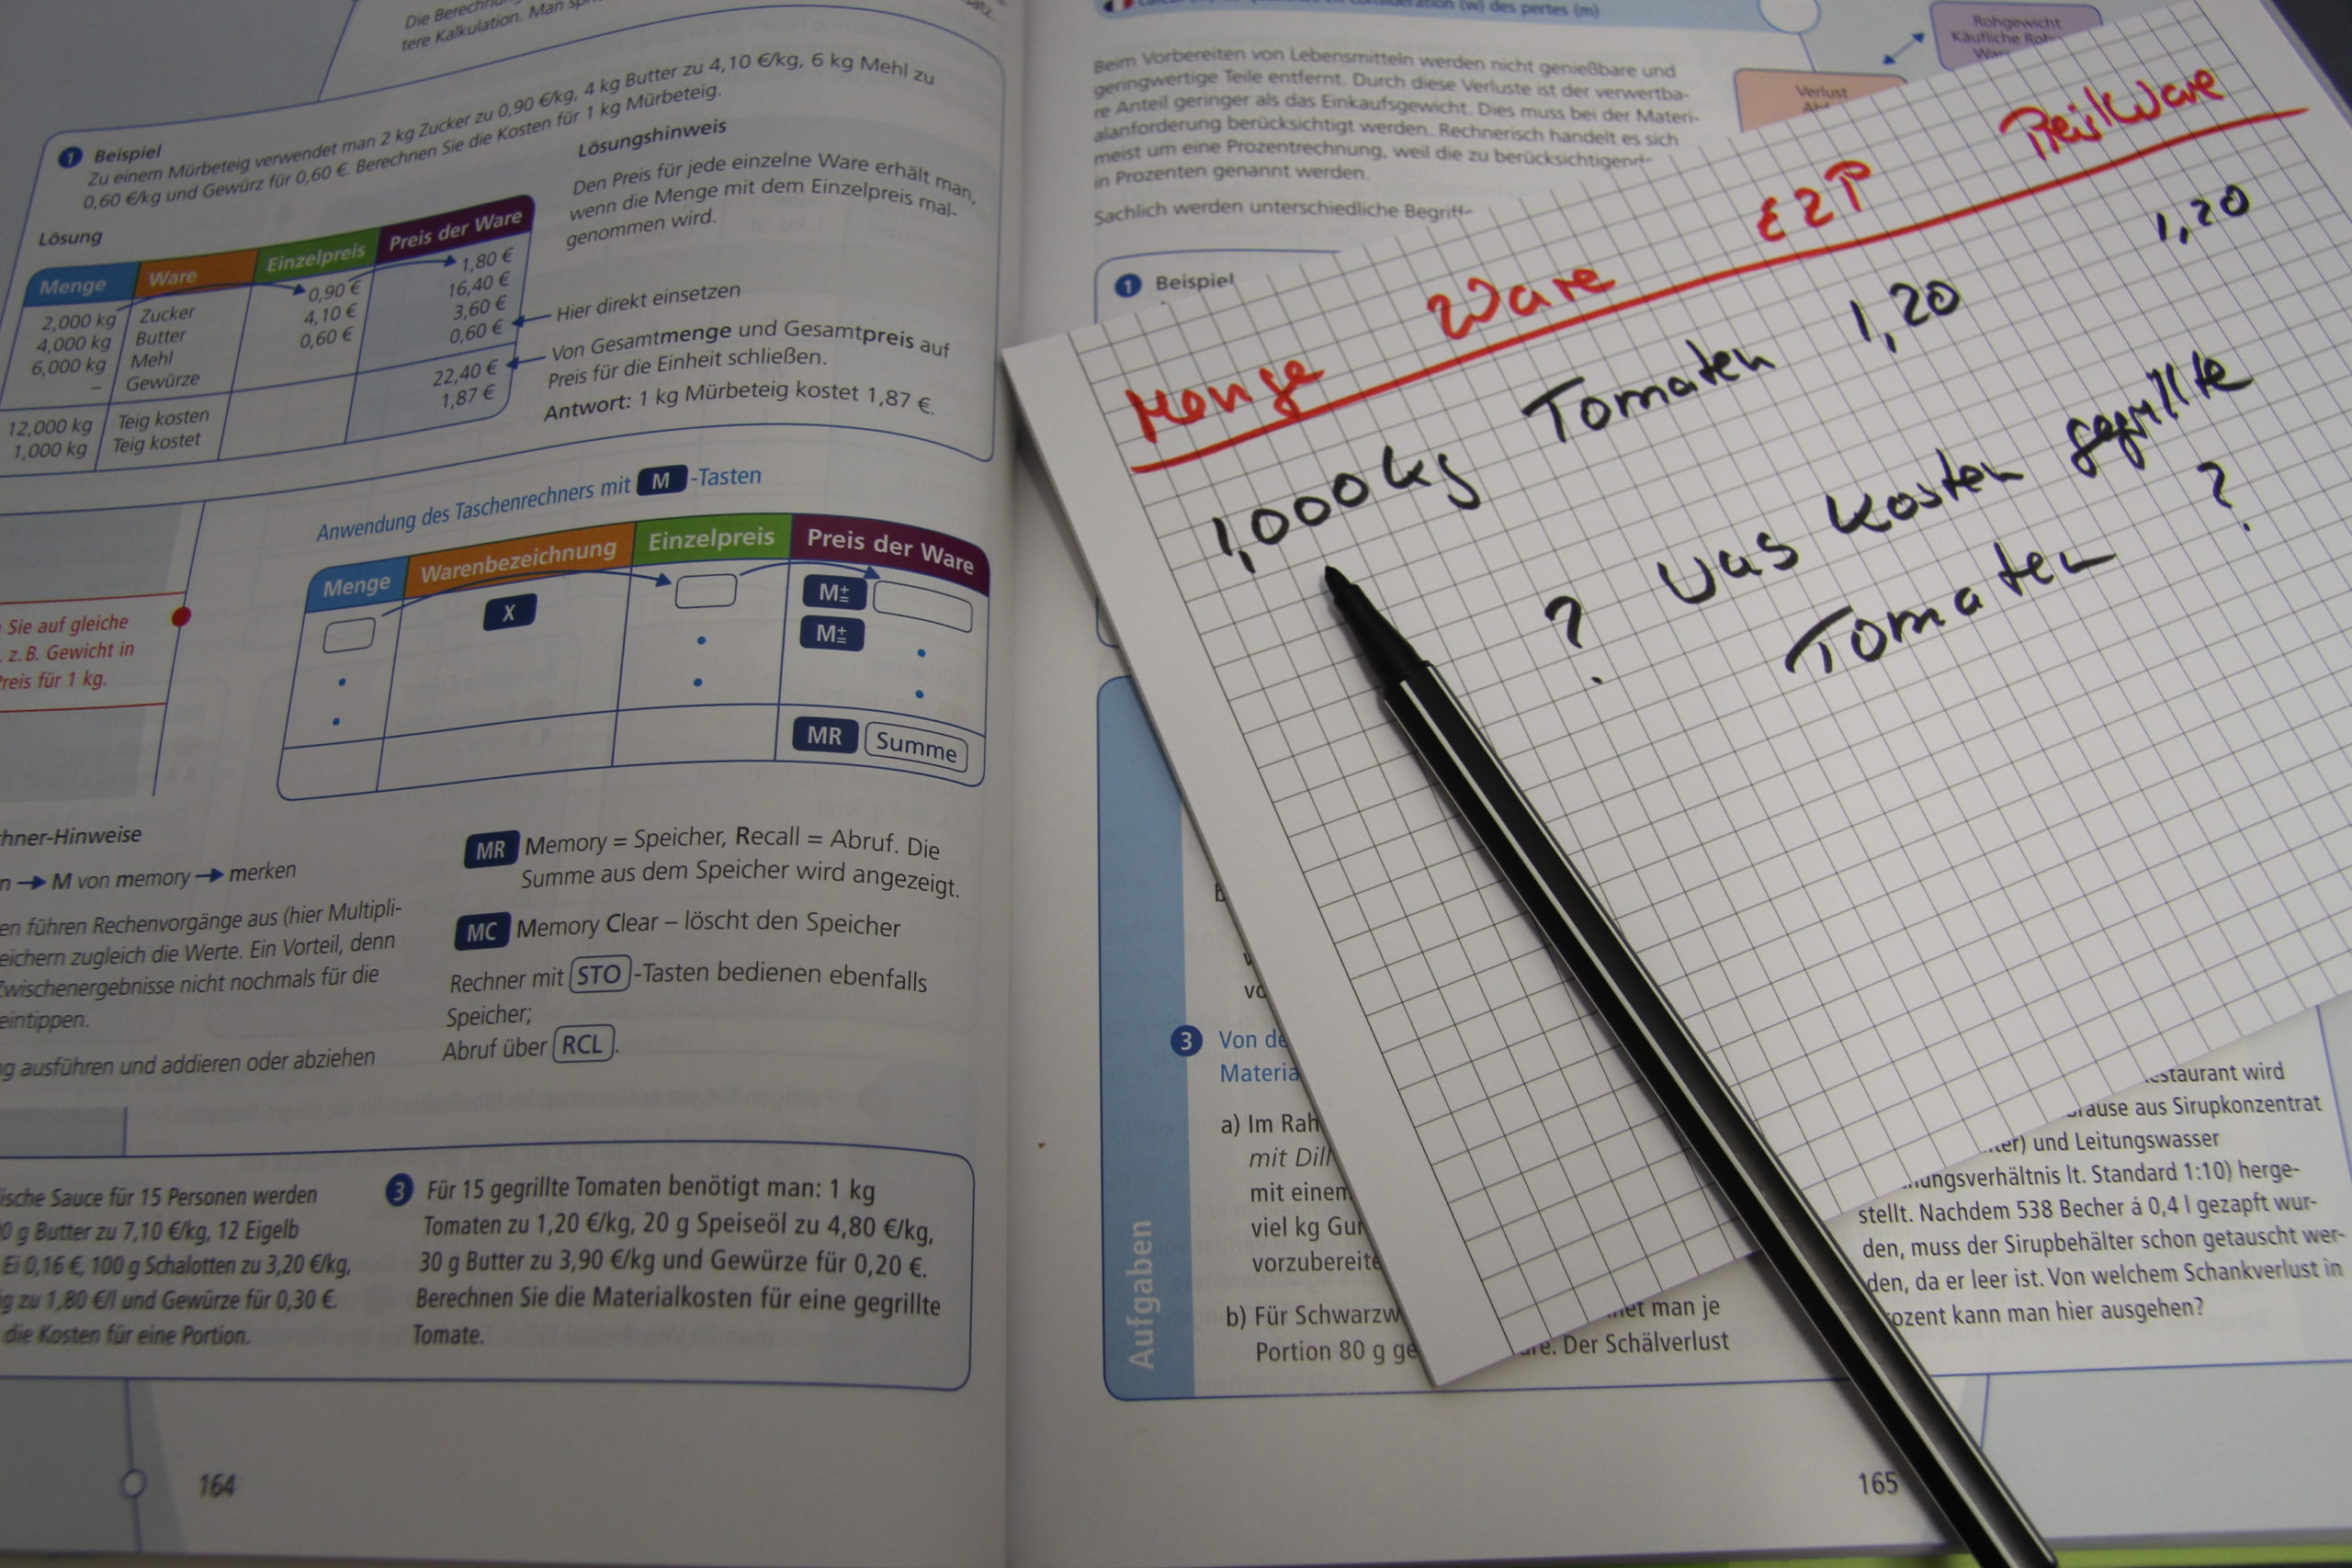 Die Berechnung
tere Kalkulation. Man
1 Beispiel
Zu einem Mürbeteig verwendet man 2 kg Zucker zu 0,90 €/kg, 4 kg Butter zu 4,10 €/kg, 6 kg Mehl zu
0,60 €/kg und Gewürz für 0,60 €. Berechnen Sie die Kosten für 1 kg Mürbeteig.
Lösung
Menge Ware Einzelpreis Preis der Ware
2,000 kg Zucker 0,90 € 1,80 €
4,000 kg Butter 4,10 € 16,40 €
6,000 kg Mehl 0,60 € 3,60 €
– Gewürze 0,60 €
12,000 kg Teig kosten 22,40 €
1,000 kg Teig kostet 1,87 €
Lösungshinweis
Den Preis für jede einzelne Ware erhält man,
wenn die Menge mit dem Einzelpreis mal-
genommen wird.
Hier direkt einsetzen
Von Gesamtmenge und Gesamtpreis auf
Preis für die Einheit schließen.
Antwort: 1 kg Mürbeteig kostet 1,87 €.
Anwendung des Taschenrechners mit M -Tasten
Menge Warenbezeichnung Einzelpreis Preis der Ware
X M±
M±
MR Summe
Sie auf gleiche
z. B. Gewicht in
Preis für 1 kg.
hner-Hinweise
n → M von memory → merken
en führen Rechenvorgänge aus (hier Multipli-
eichern zugleich die Werte. Ein Vorteil, denn
Zwischenergebnisse nicht nochmals für die
eintippen.
g ausführen und addieren oder abziehen
MR Memory = Speicher, Recall = Abruf. Die
Summe aus dem Speicher wird angezeigt.
MC Memory Clear – löscht den Speicher
Rechner mit STO -Tasten bedienen ebenfalls
Speicher;
Abruf über RCL .
ische Sauce für 15 Personen werden
0 g Butter zu 7,10 €/kg, 12 Eigelb
Ei 0,16 €, 100 g Schalotten zu 3,20 €/kg,
ig zu 1,80 €/l und Gewürze für 0,30 €.
die Kosten für eine Portion.
3 Für 15 gegrillte Tomaten benötigt man: 1 kg
Tomaten zu 1,20 €/kg, 20 g Speiseöl zu 4,80 €/kg,
30 g Butter zu 3,90 €/kg und Gewürze für 0,20 €.
Berechnen Sie die Materialkosten für eine gegrillte
Tomate.
164
en considération (w) des pertes (m)
Beim Vorbereiten von Lebensmitteln werden nicht genießbare und
geringwertige Teile entfernt. Durch diese Verluste ist der verwertba-
re Anteil geringer als das Einkaufsgewicht. Dies muss bei der Materi-
alanforderung berücksichtigt werden. Rechnerisch handelt es sich
meist um eine Prozentrechnung, weil die zu berücksichtigend
in Prozenten genannt werden.
Sachlich werden unterschiedliche Begriff
Rohgewicht
Käufliche Roh
Verlust
1 Beispiel
Menge Ware EZP Preis/Ware
1,000 kg Tomaten 1,20 1,20
? Was kosten gegrillte
Tomaten ?
Aufgaben
3 Von de
Materia
a) Im Rah
mit Dill
mit einem
viel kg Gur
vorzubereite
b) Für Schwarzw net man je
Portion 80 g ge re. Der Schälverlust
estaurant wird
rause aus Sirupkonzentrat
ter) und Leitungswasser
ungsverhältnis lt. Standard 1:10) herge-
stellt. Nachdem 538 Becher á 0,4 l gezapft wur-
den, muss der Sirupbehälter schon getauscht wer-
den, da er leer ist. Von welchem Schankverlust in
rozent kann man hier ausgehen?
165